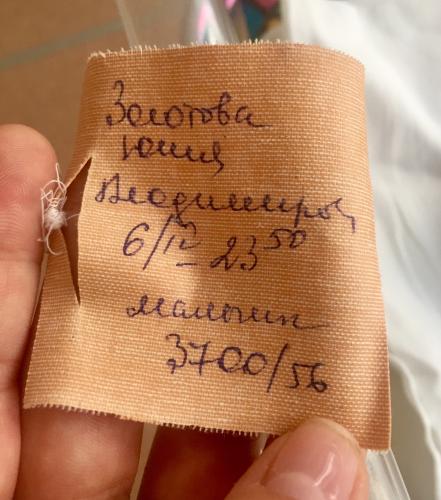 Золотова
Юлия
Владимиров
6/IV - 23 50
мальчик
3700/56